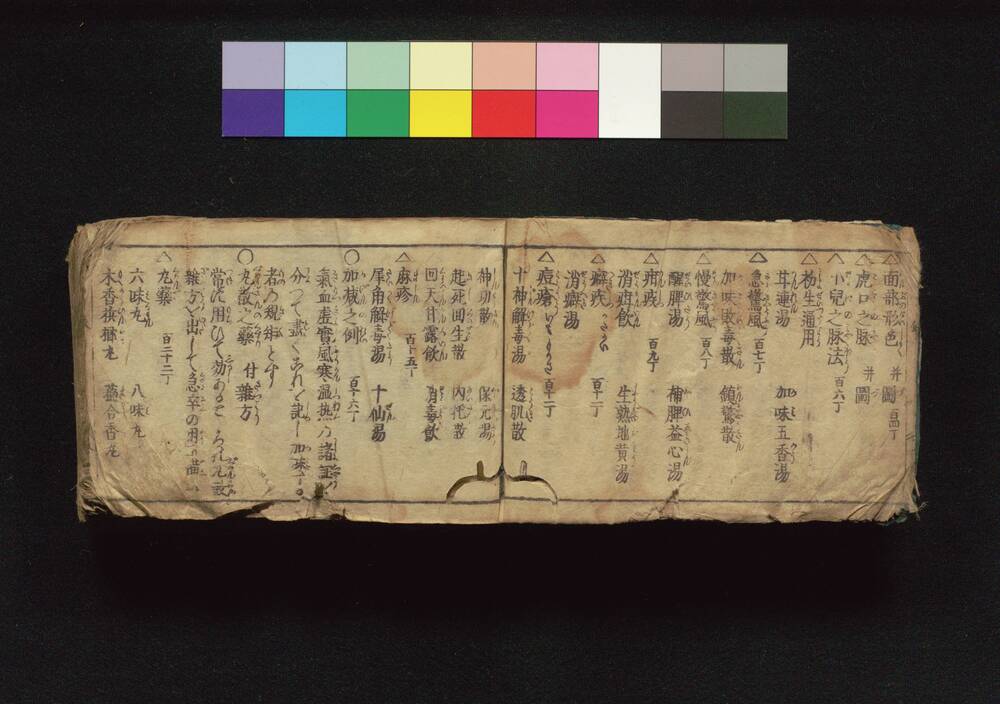 △面部形色 并圖
△虎口之脉 并圖
△小兒之脉法 百六丁
△初生通用
耳連湯 加味五香湯
△急驚風 百七丁
加味敗毒散 鎮驚散
△慢驚風 百八丁
醒脾湯 補脾益心湯
△疳疾 百九丁
消疳飲 生熟地黄湯
△癖疾 百十一丁
消癖湯
△痘瘡 百十二丁
十神解毒湯 透肌散
神功散 保元湯
起死回生散 内托散
回天甘露飲 消毒飲
△麻疹 百十五丁
犀角解毒湯 十仙湯
○加减之例 百十六丁
氣血虚實風寒温熱乃諸証
分つて盡くこれを記し加味する
者乃規矩とす
○丸散之藥 付雜方
常に用ひて効ある
雜方を出して急卒の用に備
△丸藥 百二十二丁
六味丸 八味丸
木香檳榔丸 蘓合香丸